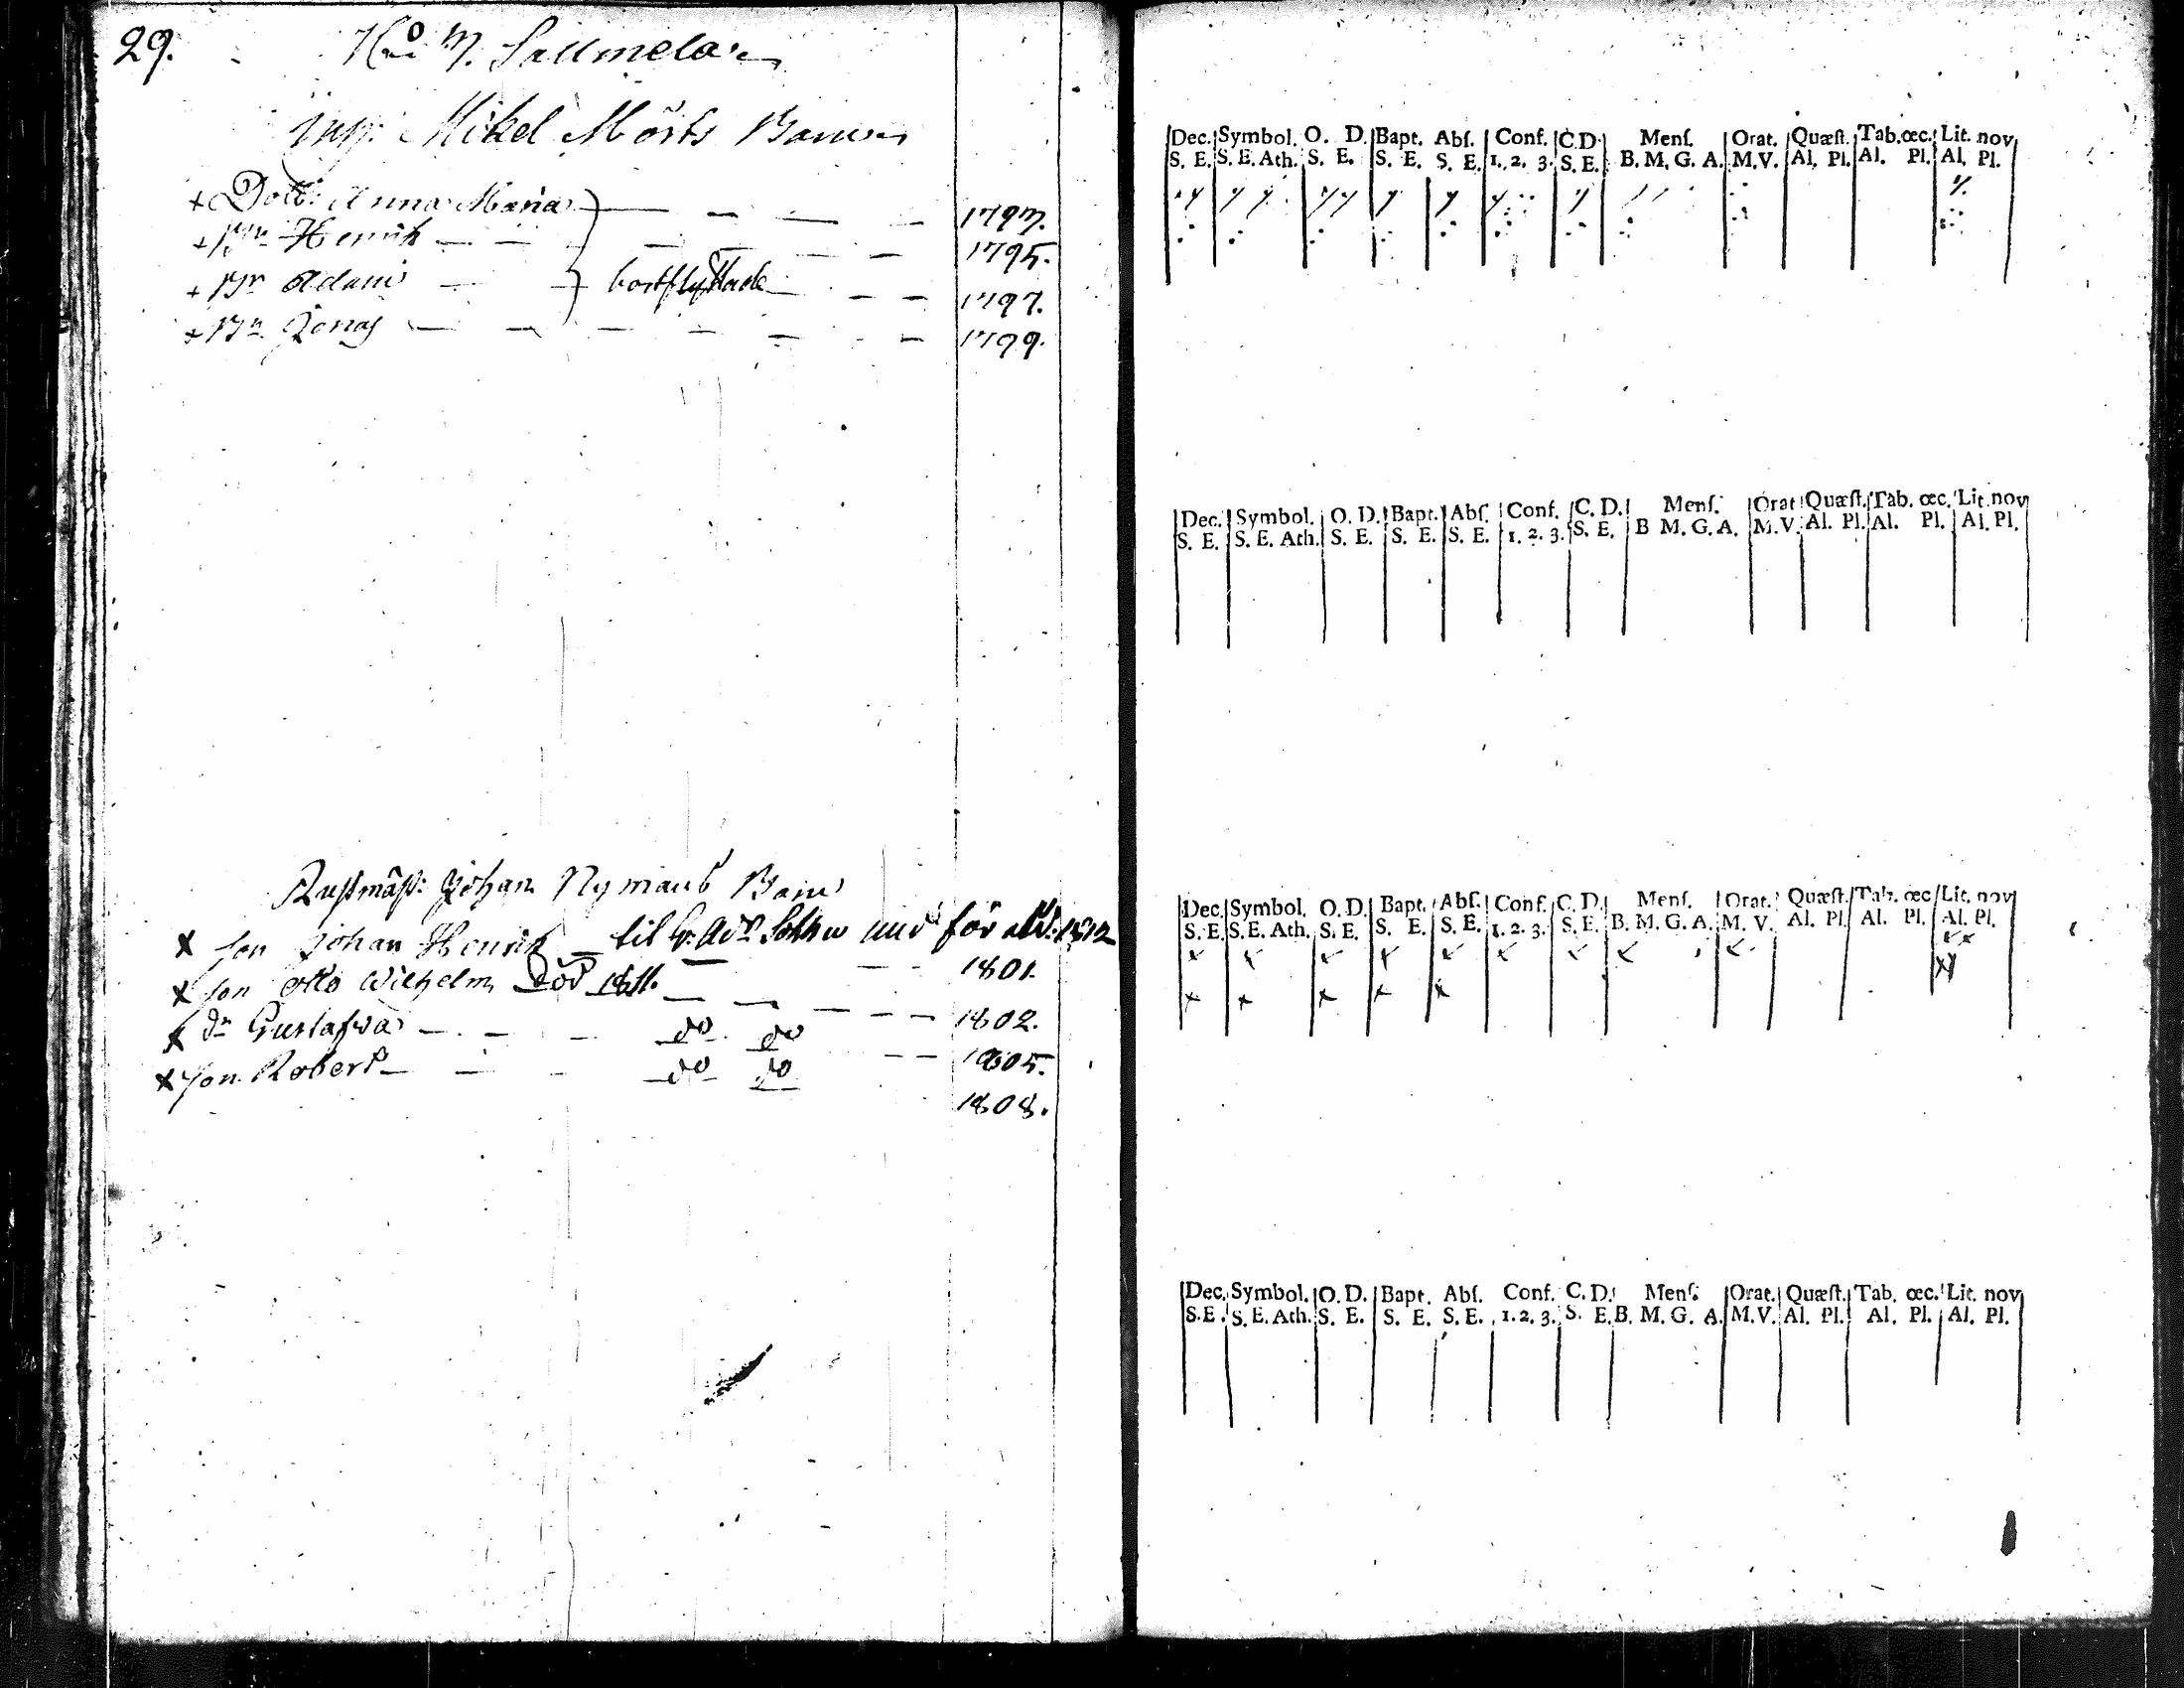 29. No 7. Sallmela
Insp: Mikel Mörts Barn
+ Dott: Anna Maria 1793.
+ Henrik 1795.
+ Adam bortflyttade 1797.
+ Jonas 1799.
Rustmäst: Johan Nymans Barn
x Son Johan Henrik til Sokn för 1812
1801.
x Son Otto Wilhelm Död 1811.
1802.
x Dr Gustafva do do
1805.
x Son Robert do do
1808.
Dec. Symbol. O. D. Bapt. Abſ. Conf. C.D. Menſ. Orat. Quæſt. Tab. œc. Lit. nov
S. E. S. E. Ath. S. E. S. E. S. E. 1. 2. 3. S. E. B. M. G. A. M. V. Al. Pl. Al. Pl. Al. Pl.
Dec. Symbol. O. D. Bapt. Abſ. Conf. C. D. Menſ. Orat Quæſt. Tab. œc. Lit. nov
S. E. S. E. Ath. S. E. S. E. S. E. 1. 2. 3. S. E. B M. G. A. M. V. Al. Pl. Al. Pl. Al. Pl.
Dec. Symbol. O. D. Bapt. Abſ. Conf. C. D. Menſ. Orat. Quæſt. Tab. œc Lit. nov
S. E. S. E. Ath. S. E. S. E. S. E. 1. 2. 3. S. E. B. M. G. A. M. V. Al. Pl. Al. Pl. Al. Pl.
Dec. Symbol. O. D. Bapt. Abſ. Conf. C. D. Menſ. Orat. Quæſt. Tab. œc. Lit. nov
S. E. S. E. Ath. S. E. S. E. S. E. 1. 2. 3. S. E. B. M. G. A. M. V. Al. Pl. Al. Pl. Al. Pl.